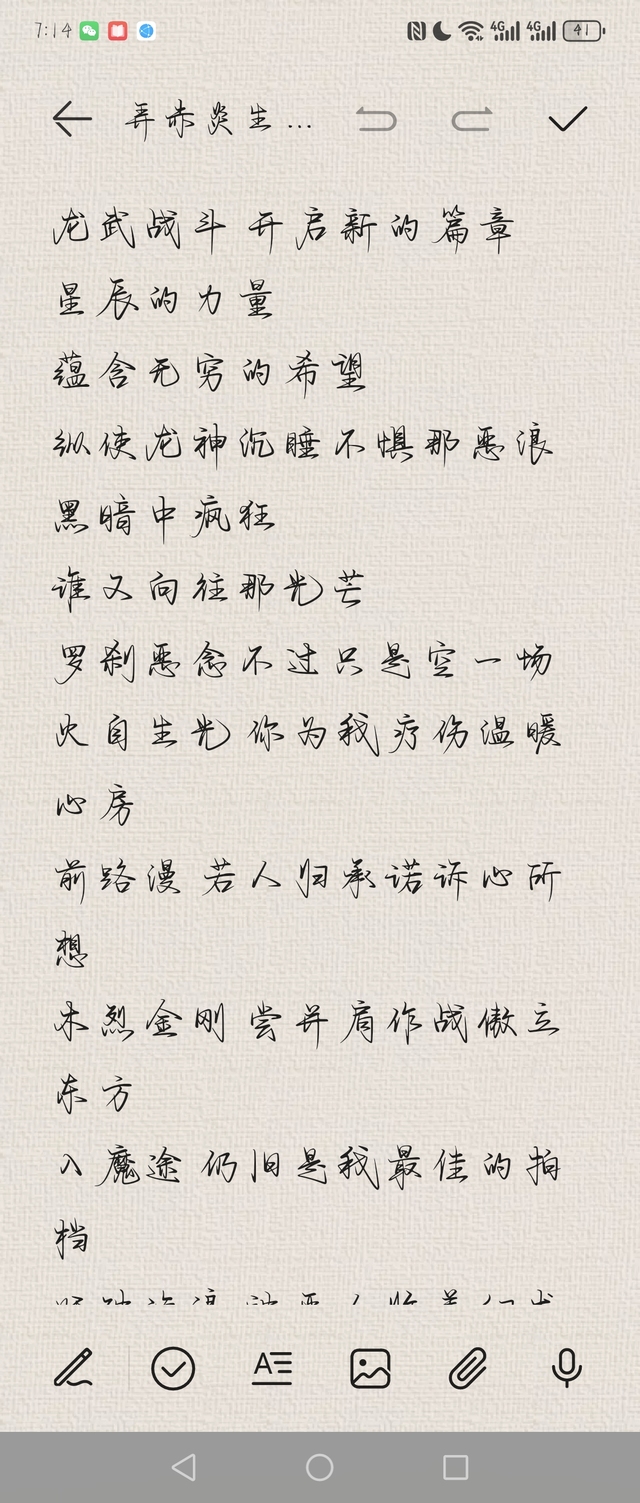 7:14
4G 4G 41
弄赤炎生...
龙武战斗 开启新的篇章
星辰的力量
蕴含无穷的希望
纵使龙神沉睡不惧那恶浪
黑暗中疯狂
谁又向往那光芒
罗刹恶念不过只是空一场
火自生光你为我疗伤温暖
心房
前路漫 若人归承诺诉心所
想
木烈金刚 尝并肩作战傲立
东方
入魔途 仍旧是我最佳的拍
档